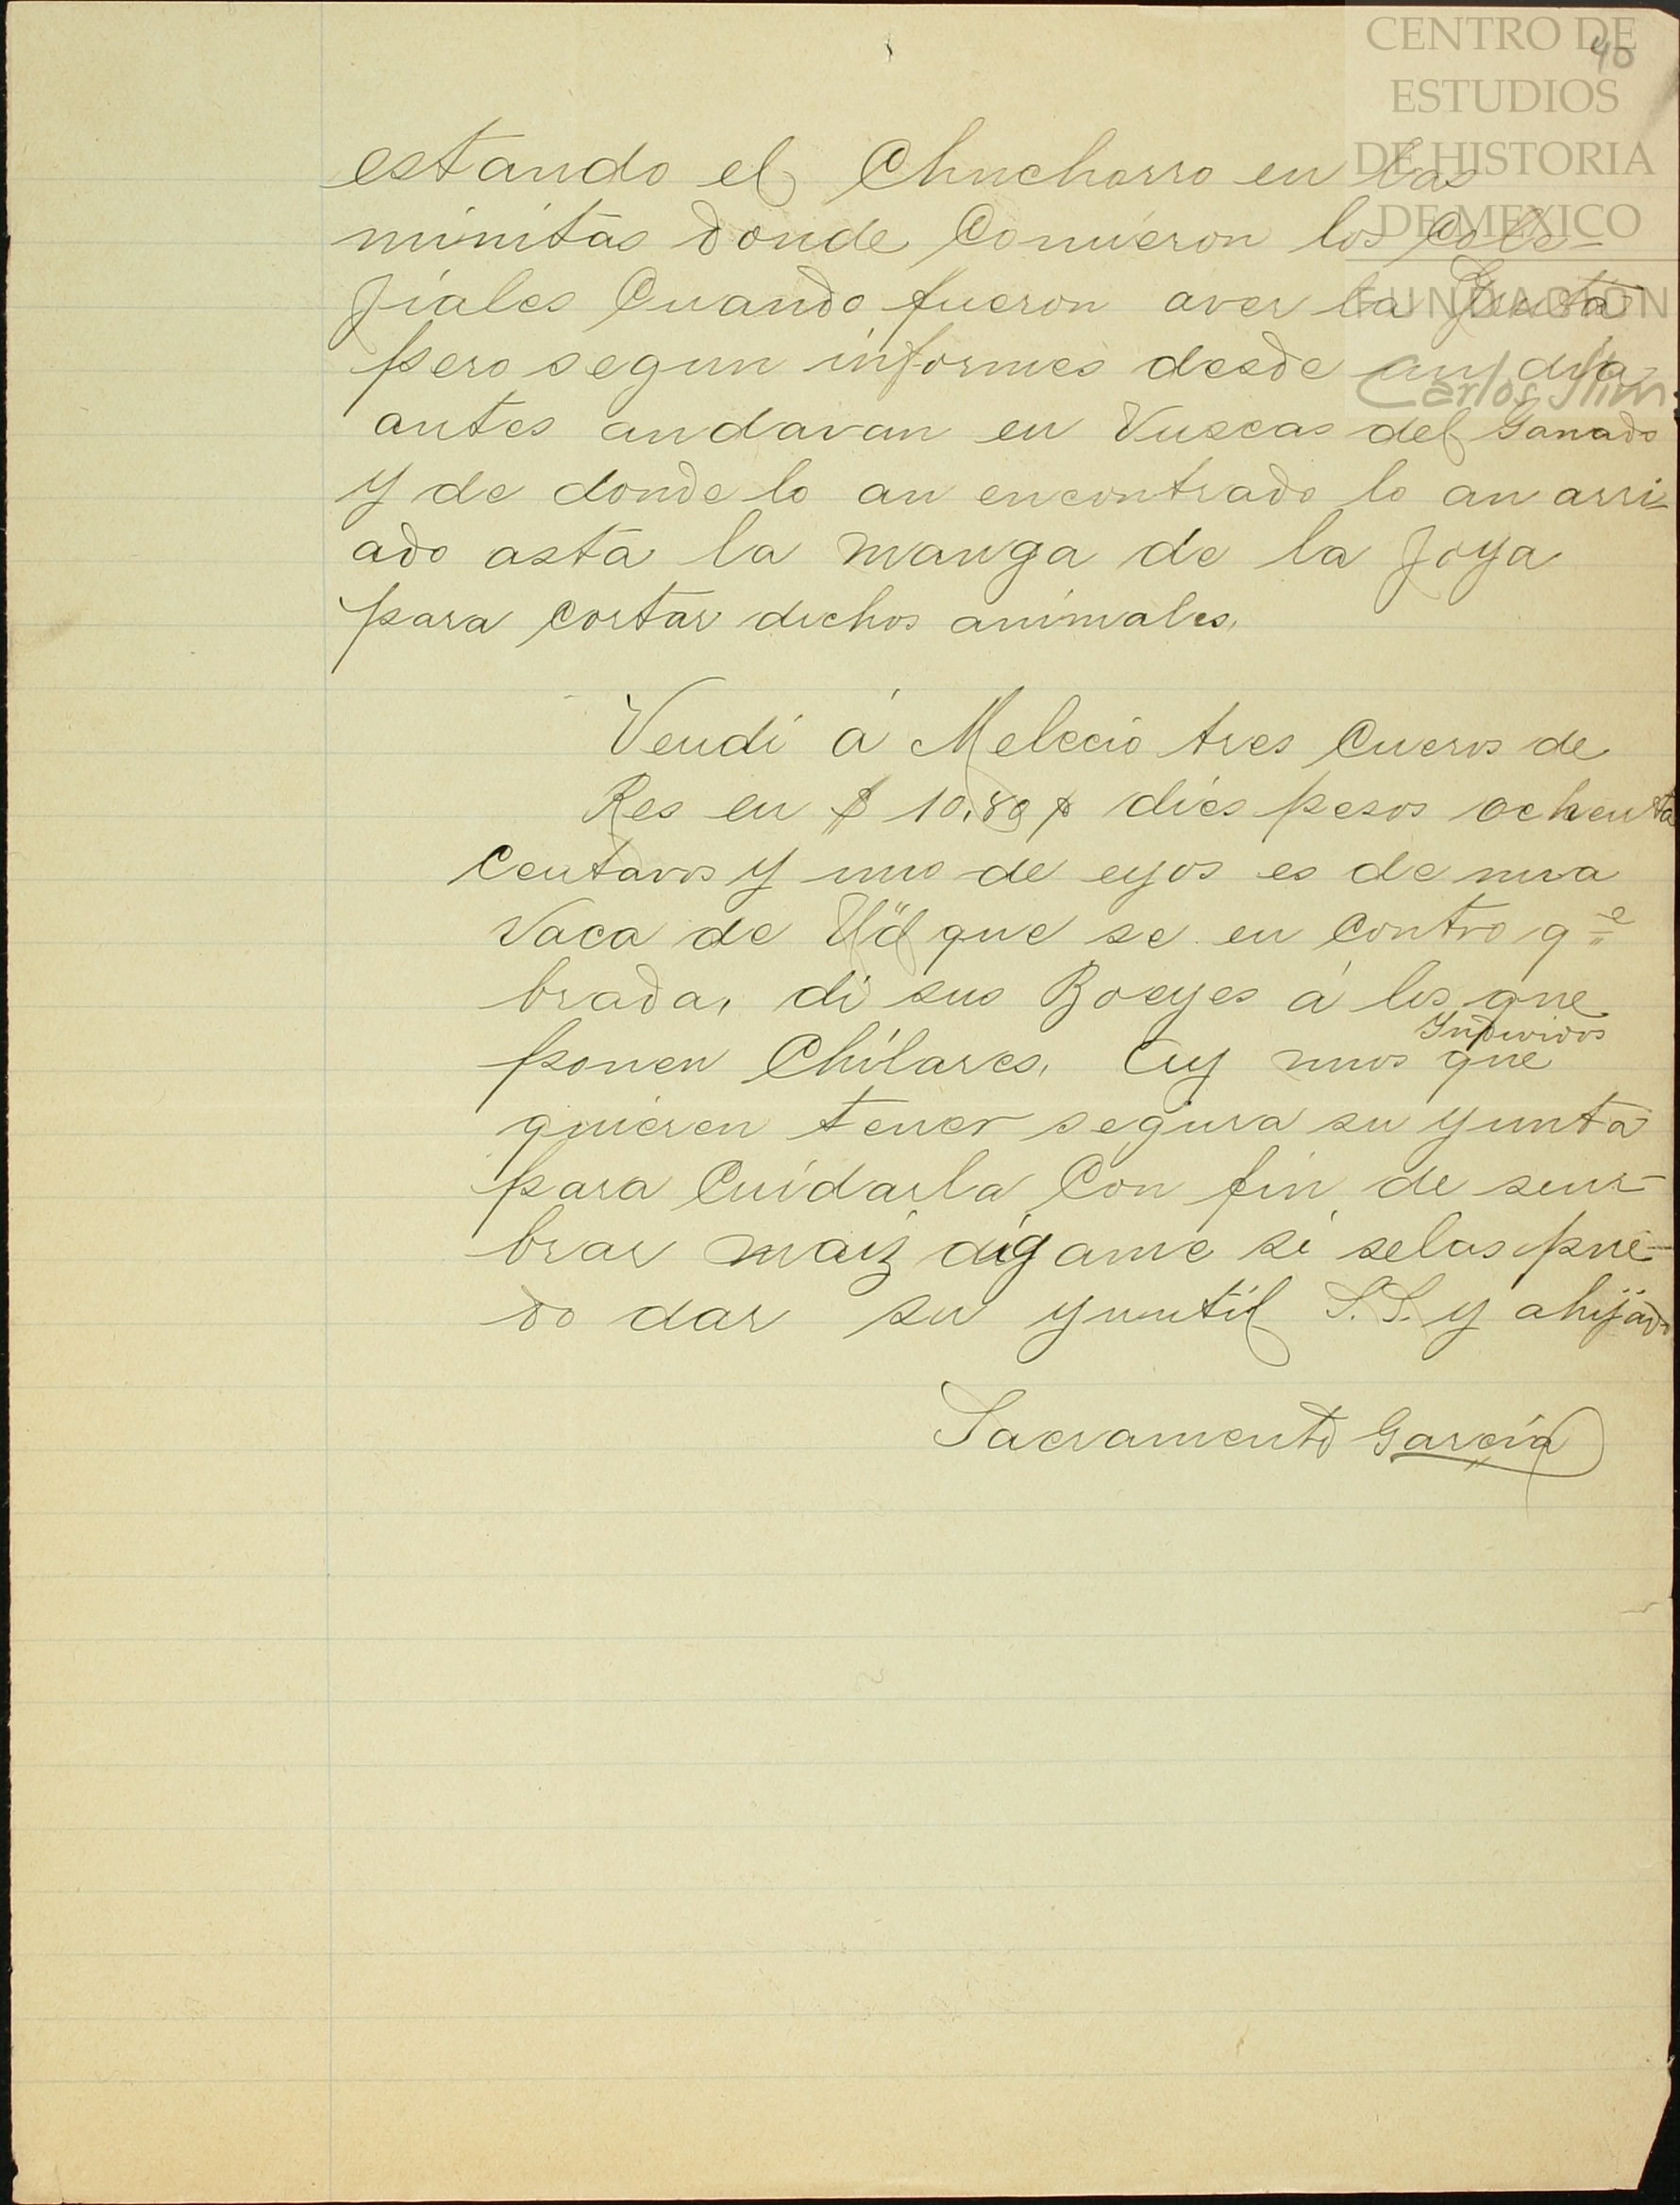 CENTRO DE
ESTUDIOS
DE HISTORIA
DE MEXICO
FUNDACION
Carlos Slim
40
estando el Chuchorro en las
minitas donde Comieron los Cole-
jiales Cuando fueron aver la Gruta
pero segun informes desde un dia
antes andavan en Vuscas del Ganado
y de donde lo an encontrado lo an arri-
ado asta la manga de la Joya
para cortar dichos animales.
Vendí á Melecio tres Cueros de
Res en $ 10.80 ¢ dies pesos ochenta
Centavos y uno de eyos es de una
Vaca de Ud que se en Contro qe
brada, di sus Boeyes á los que
ponen Chilares, ay unos Yndividos que
quieren tener segura su yunta
para Cuidarla Con fin de sem-
brar maiz digame si selas pue-
do dar su ynutil S.S. y ahijado
Sacramento García